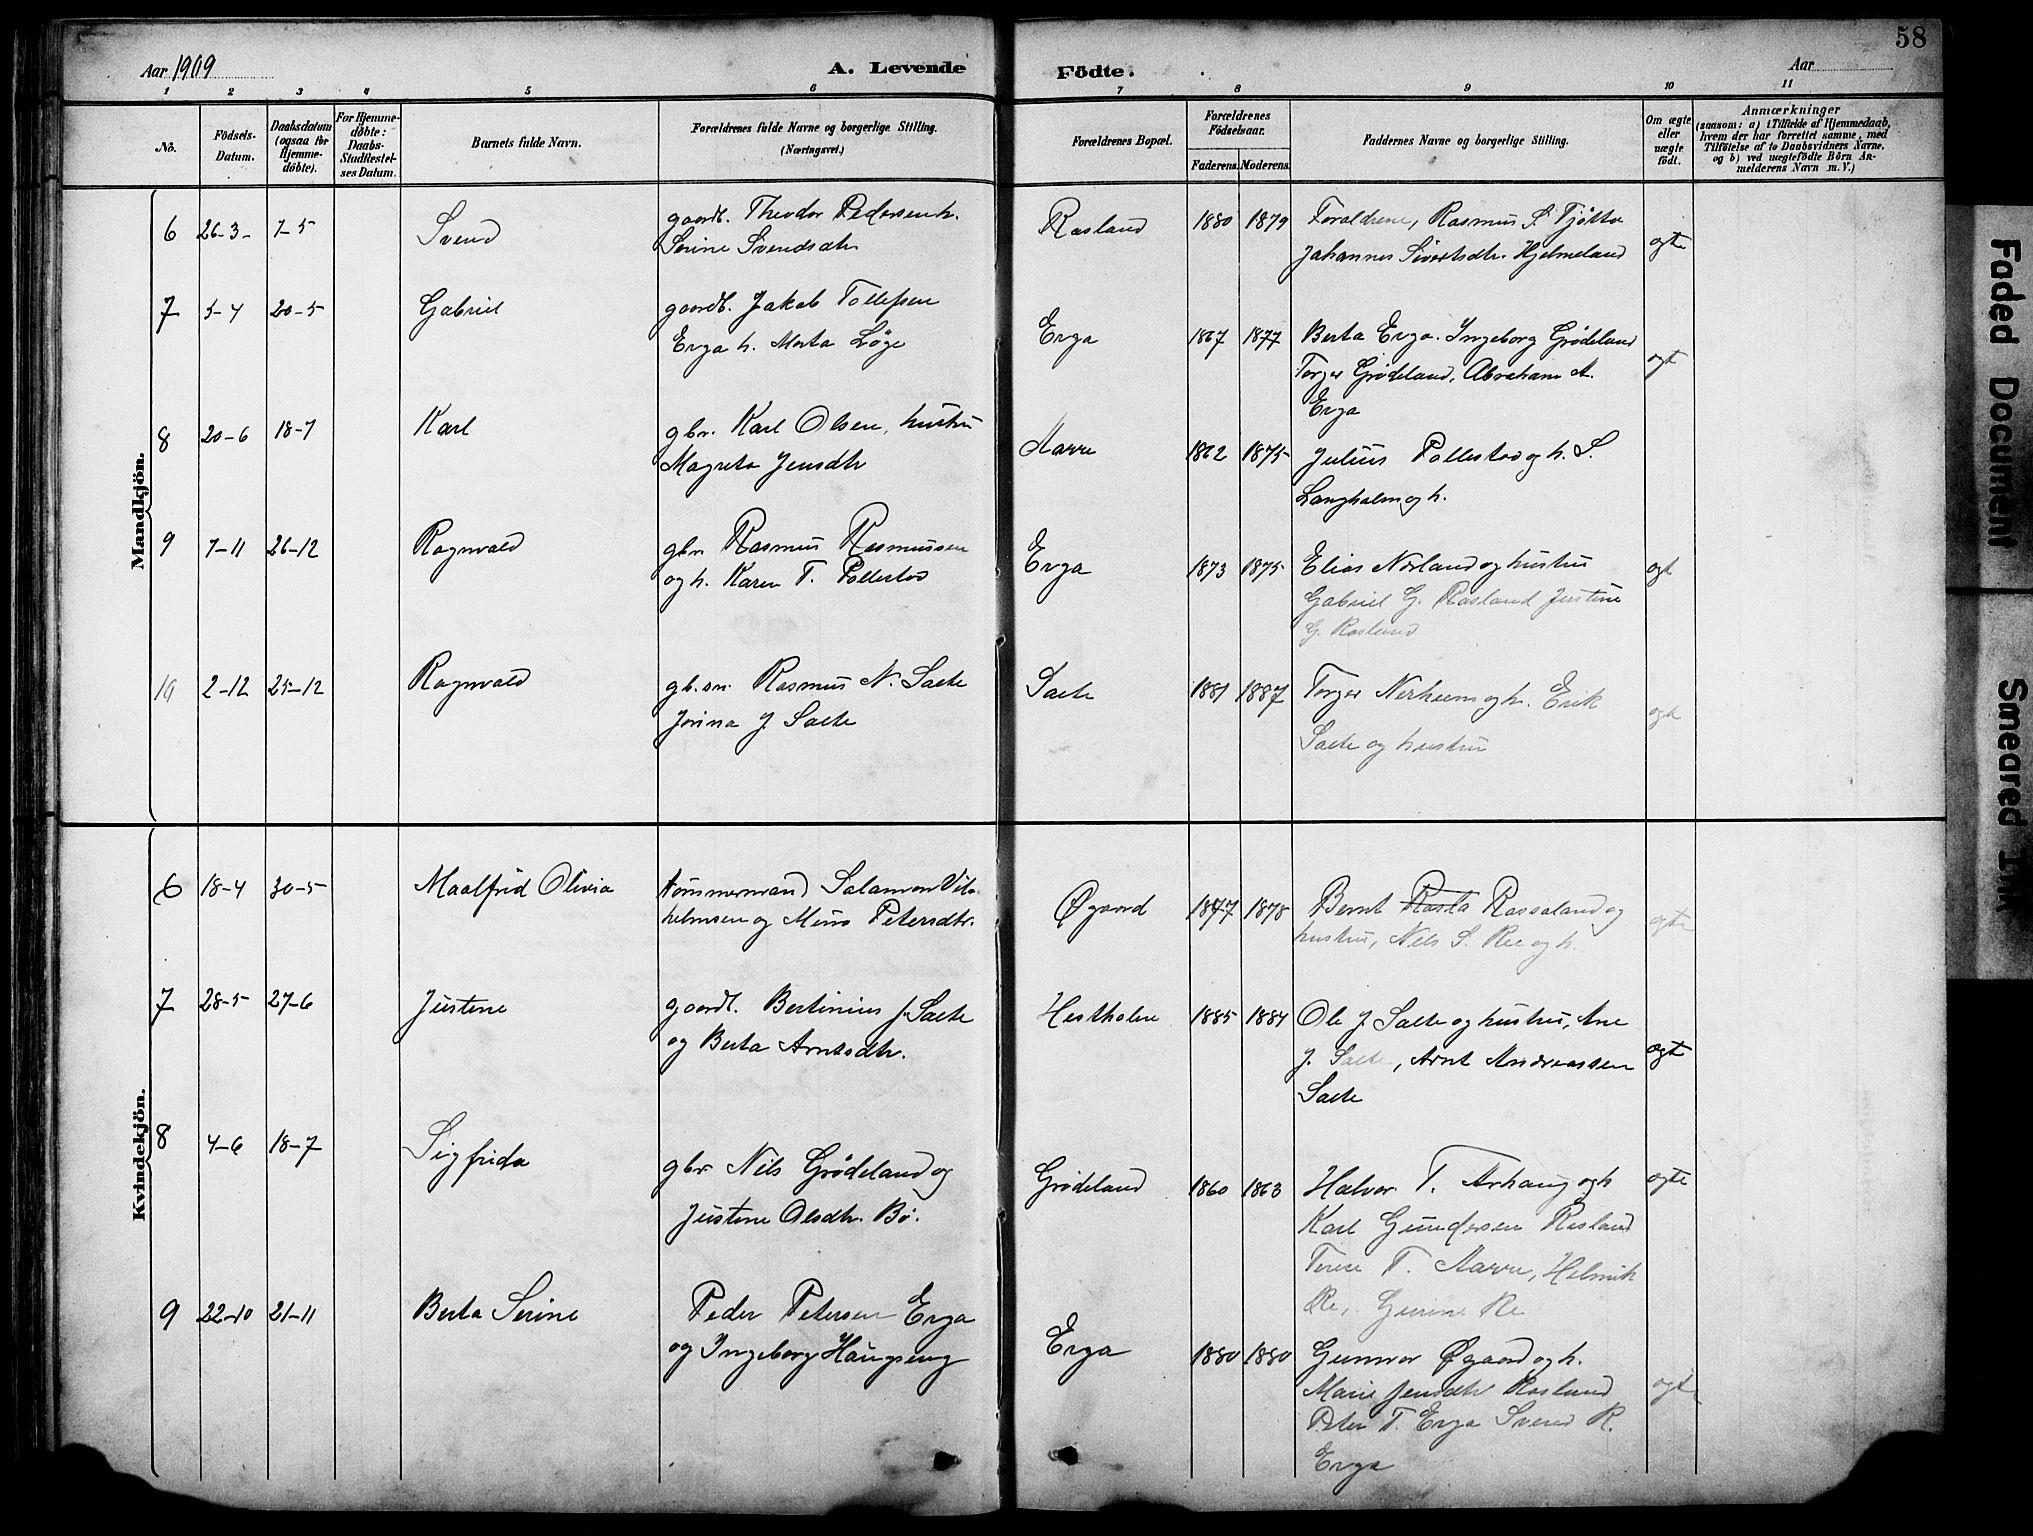 58
Aar 1909
A. Levende Födte.
Aar
1 2 3 4 5 6 7 8 9 10 11
No.
Födsels-Datum.
Daabsdatum (ogsaa for Hjemme-döbte).
For Hjemme-döbte: Daabs-Stadfæstel-ses Datum.
Barnets fulde Navn.
Forældrenes fulde Navne og borgerlige Stilling. (Næringsvei.)
Forældrenes Bopæl.
Forældrenes Födselsaar.
Faderens. Moderens.
Faddernes Navne og borgerlige Stilling.
Om ægte eller uægte födt.
Anmærkninger
(saasom: a) i Tilfælde af Hjemmedaab,
hvem der har forrettet samme, med
Tilföielse af to Daabsvidners Navne.
og b) ved uægtefödte Börn An-
melderens Navn m. V.)
Mandkjön.
6 26-3- 7-5 Svend gaardb. Theodor Pedersen h. Rasland 1880 1879 Foraldrene, Rasmus S. Tjøtta
Serine Svendsdtr. Johannes Sivertsdtr. Hjelmeland ægte
7 5-4 20-5 Gabriel gaardb. Jakob Tollefsen
Erga h. Marta Løge Erga 1867 1877 Berta Erga. Ingeborg Grødeland
Torger Grødeland, Abraham A. ægt
Erga
8 20-6 18-7 Karl gbr. Karl Olsen, hustru
Magreta Jensdtr Aarre 1862 1875 Julius Pollestad og h. S.
Langholm og h.
9 7-11 26-12 Ragnvald gbr. Rasmus Rasmussen
og h. Karen T. Pollestad Erga 1873 1875 Elias Norland og hustru ægt
Gabriel G. Rasland Justine
G. Rasland
10 2-12 25-12 Ragnvald Rasmus N. Salte
Jorina J. Salte Salte 1881 1887 Torger Nerheim og h. Erik
Salte og hustru ægt
Kvindekjön.
6 18-4 30-5 Maalfrid Olivia tømmermand Salamon Vil-
helmsen og Mina Petersdtr. Øgaard 1877 1878 Bernt Rassaland og
hustru, Nils S. Ree og h. ægte
7 28-5 27-6 Justine gaardb. Bertinius J. Salte
og Berta Arntsdtr. Hestholm 1885 1884 Ole J Salte og hustru, Ane
J. Salte, Arnt Andreassen ægte
Salte
8 4-6 18-7 Sigfrida gbr Nils Grødeland og
Justine Olsdtr. Bø. Grødeland 1860 1863 Halvor T. Århaug og h ægte
Karl Gundersen Rasland
Terese T. Aarre, Helmik
Re, Gurine Re
9 22-10 21-11 Berta Serine Peder Petersen Erga
og Ingeborg Haugseng Erga 1880 1880 Gunvor Øgaard og h.
Marie Jensdtr Rasland ægte
Peter T. Erga Svend R.
Erga
Faded Document
Smeared Ink